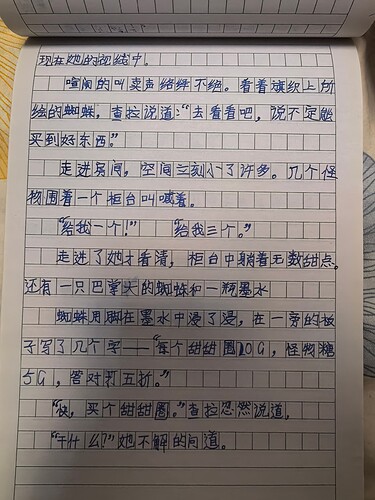 现在她的视线中。
喧闹的叫卖声络绎不绝。看着旗织上所
绘的蜘蛛，查拉说道：“去看看吧，说不定能
买到好东西。”
走进房间，空间立刻小了许多。几个怪
物围着一个柜台叫喊着。
“给我一个！” “给我三个。”
走进了她才看清，柜台中躺着无数甜点。
还有一只巴掌大的蜘蛛和一瓶墨水
蜘蛛用脚在墨水中浸了浸，在一旁的板
子写了几个字——“每个甜甜圈10G，怪物糖
5G，管对打五折。”
“快，买个甜甜圈。”查拉忽然说道。
“干什么？”她不解的问道。